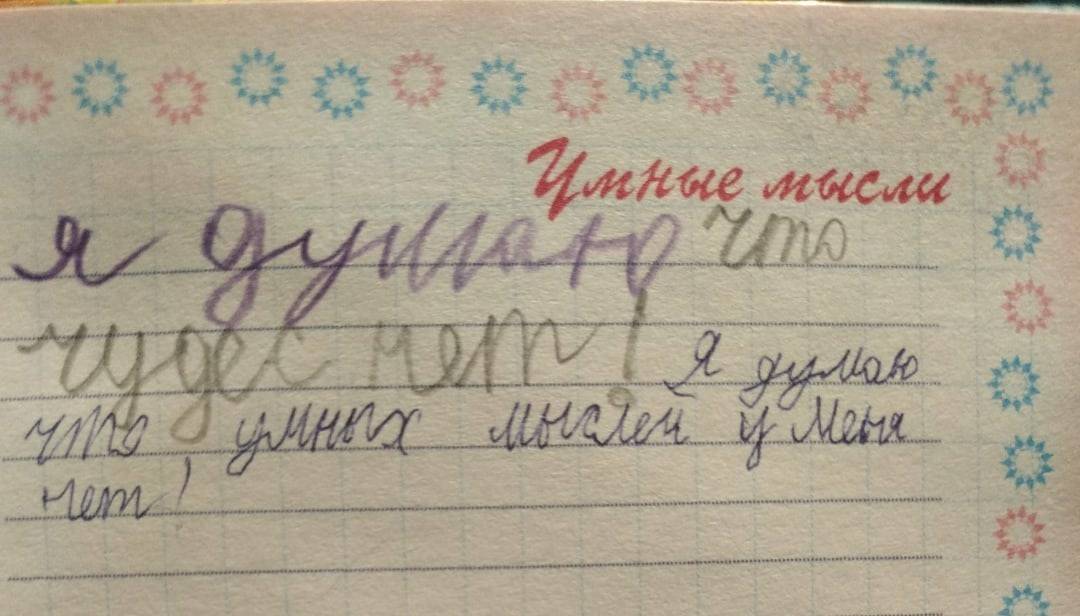 Умные мысли
я думаю что
чудес нет! Я думаю
что умных мыслей у меня
нет!